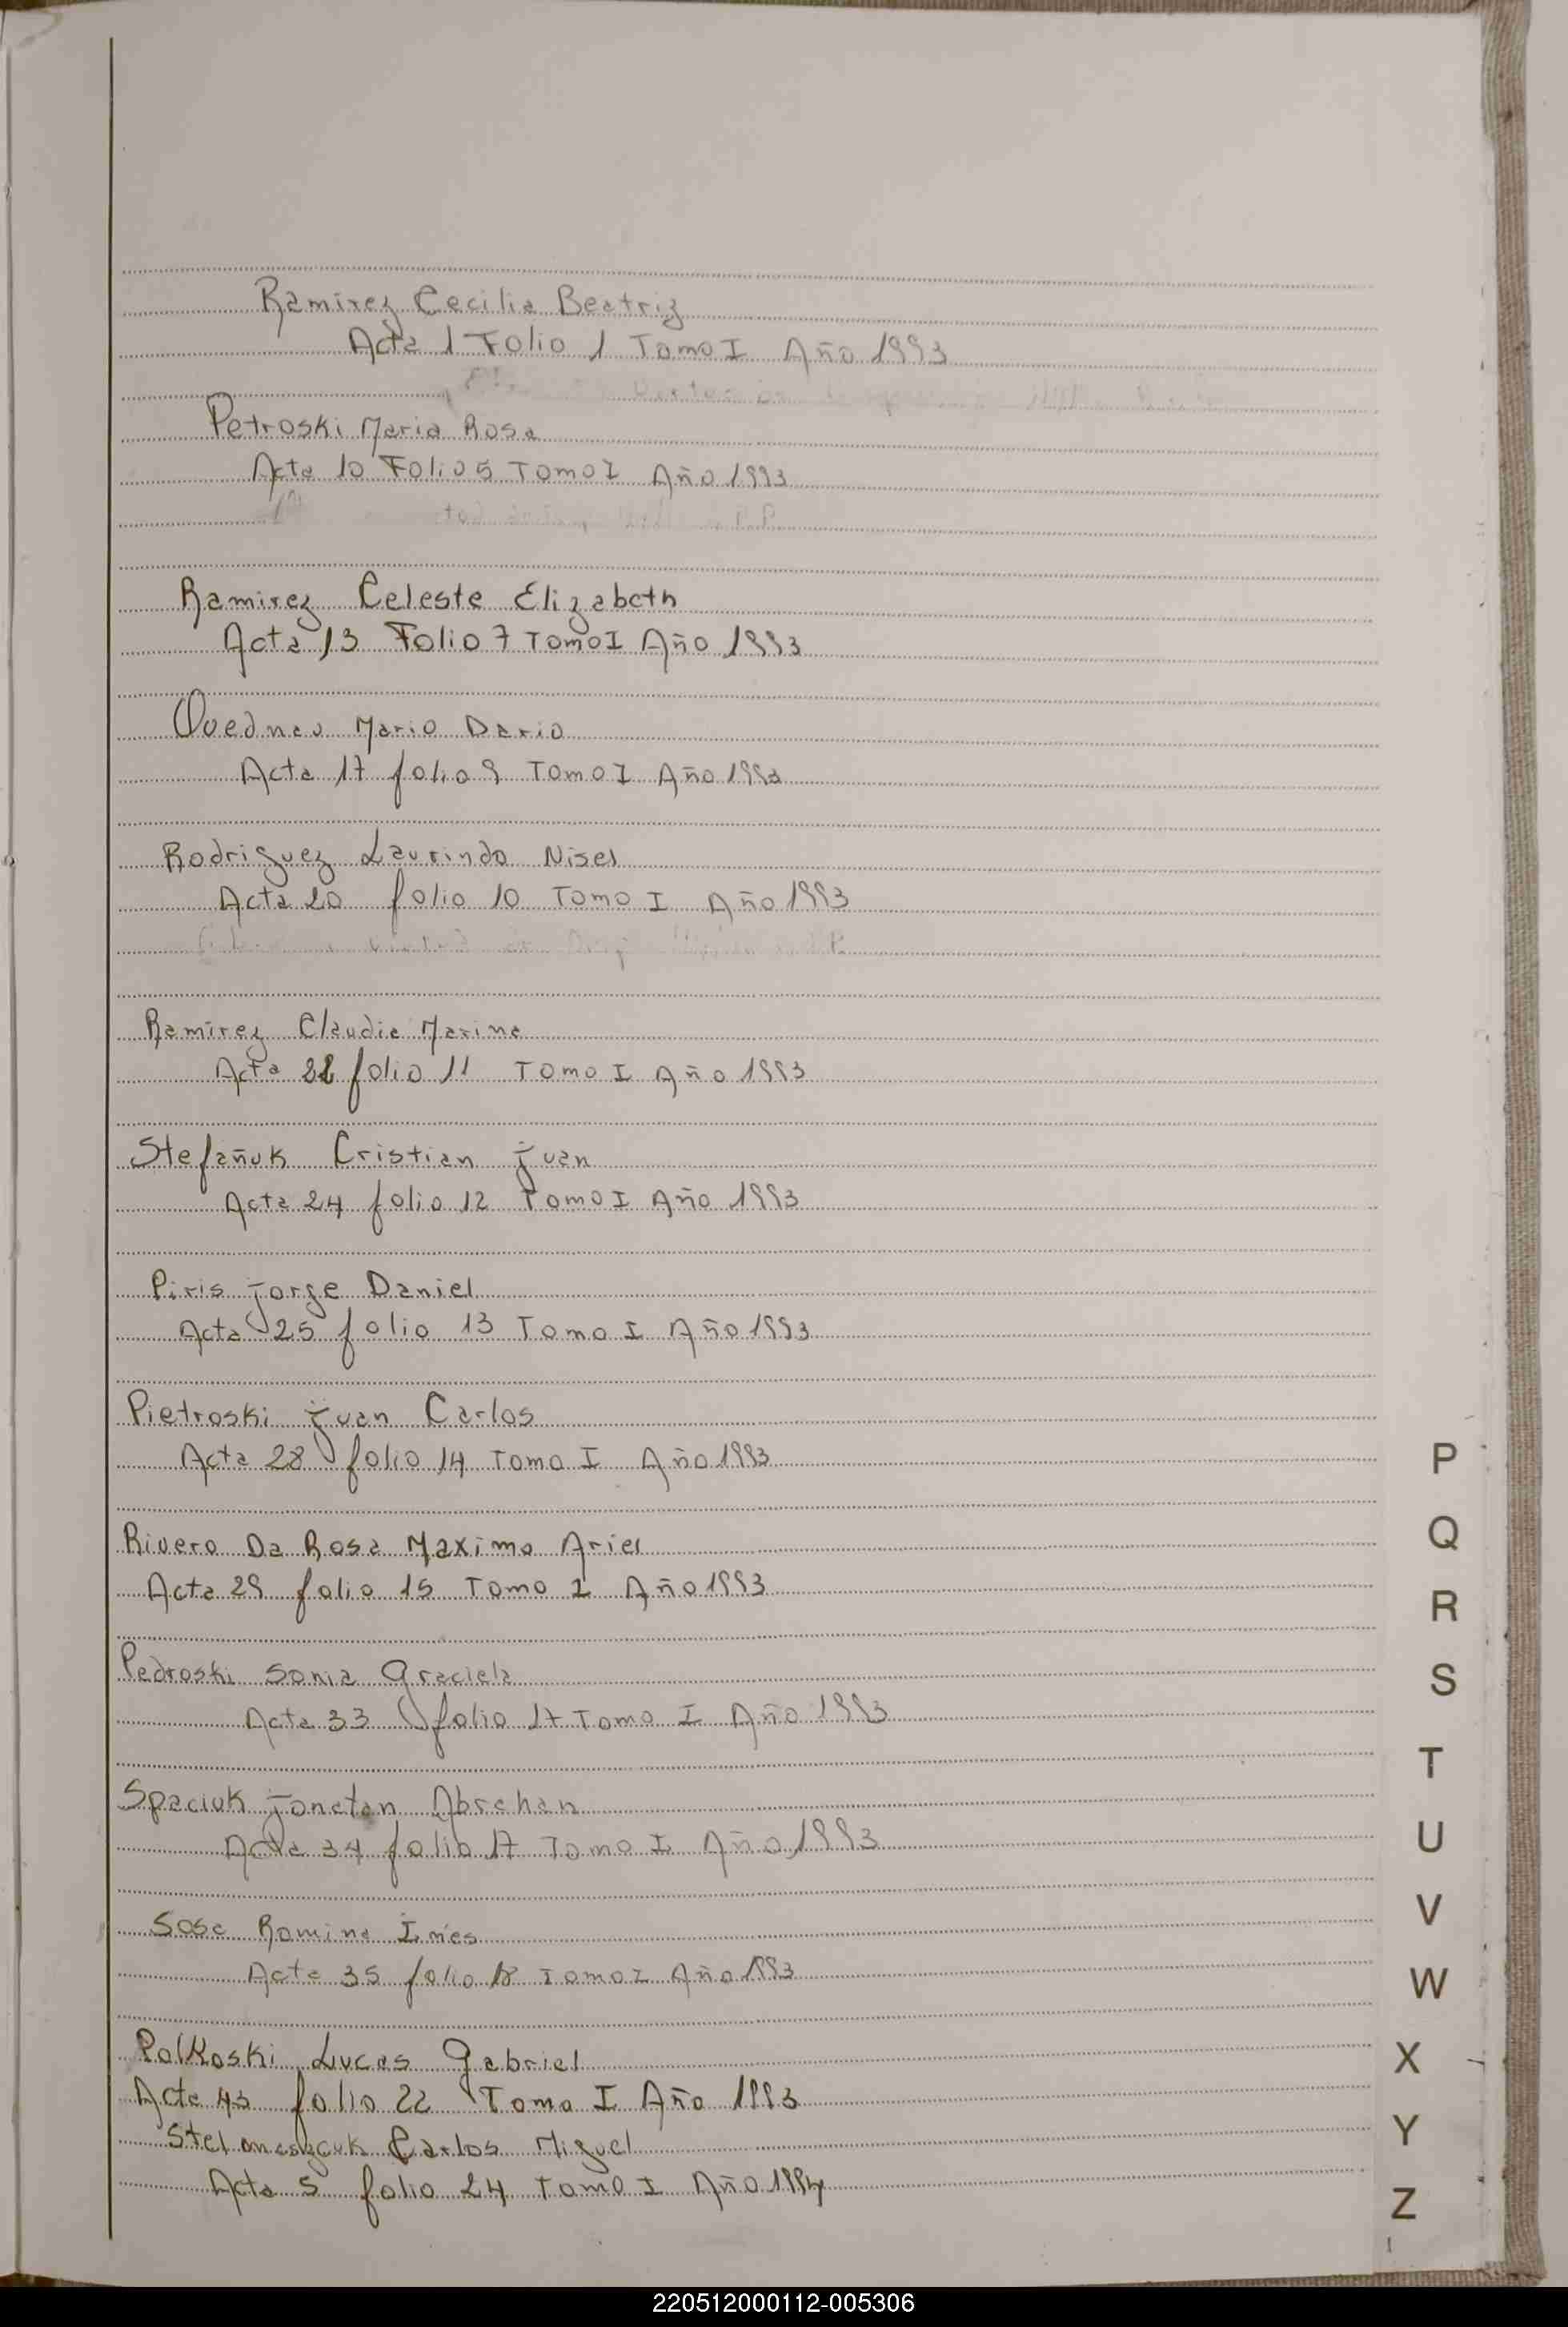 Ramirez Cecilia Beatriz
Acta 1 Folio 1 Tomo I Año 1993
Petroski Maria Rosa
Acta 10 Folio 5 Tomo I Año 1993
Ramirez Celeste Elizabeth
Acta 13 Folio 7 Tomo I Año 1993
Quednau Mario Dario
Acta 17 folio 9 Tomo I Año 1993
Rodriguez Laurindo Nisel
Acta 20 folio 10 Tomo I Año 1993
Ramirez Claudia Marina
Acta 22 folio 11 Tomo I Año 1993
Stefañuk Cristian Juan
Acta 24 folio 12 Tomo I Año 1993
Piris Jorge Daniel
Acta 25 folio 13 Tomo I Año 1993
Pietroski Juan Carlos
Acta 28 folio 14 Tomo I Año 1993
Rivero Da Rosa Maximo Ariel
Acta 29 folio 15 Tomo I Año 1993
Pedroski Sonia Graciela
Acta 33 folio 17 Tomo I Año 1993
Spaciuk Jonatan Abrahan
Acta 34 folio 17 Tomo I Año 1993
Sosa Romina Inés
Acta 35 folio 18 Tomo I Año 1993
Polkoski Lucas Gabriel
Acta 43 folio 22 Tomo I Año 1993
Carlos Miguel
Acta 5 folio 24 Tomo I Año 1994
P
Q
R
S
T
U
V
W
X
Y
Z
220512000112-005306